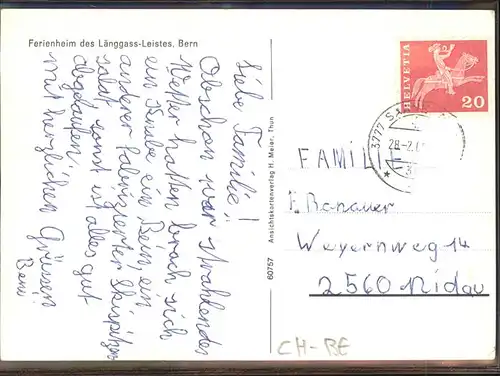 Ferienheim des Länggass-Leistes, Bern
Liebe Familie!
Obschon wir strahlendes
Wetter hatten brach sich
ein Knabe ein Bein, ein
anderer Skispitzen
sonst ist alles gut
abgelaufen.
Mit herzlichen Grüssen
60757 Ansichtskartenverlag H. Meier, Thun
HELVETIA
20
3777
28-2
FAMILIE
Weyernweg 14
2560 Nidau
CH-BE